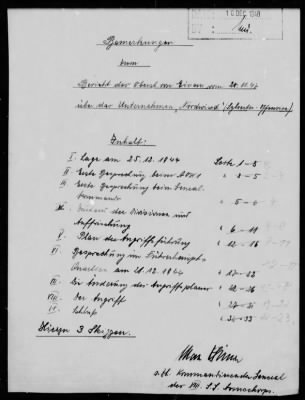 10 DEC 1948
Bemerkungen
zum
Bericht des Oberst von Einem vom 20.11.47
über das Unternehmen "Nordwind" (Sylvester-Offensive)
Inhalt:
I. Lage am 25.12.1944 Seite 1-3
II. Erste Besprechung beim AOK 1 " 3-5
III. Erste Besprechung beim General-
kommando " 5-6
IV. der Divisionen und
Auffrischung " 6-11
V. Plan der Angriffsführung " 12-16
VI. Besprechung im Führerhaupt-
quartier am 28.12.1944 " 17-22
VII. Änderung des Angriffsplanes
VIII. Der Angriff
IX. Schluß
Hierzu 3 Skizzen.
Max Simon
a. Kommandierender General
des XIII. SS Armeekorps.